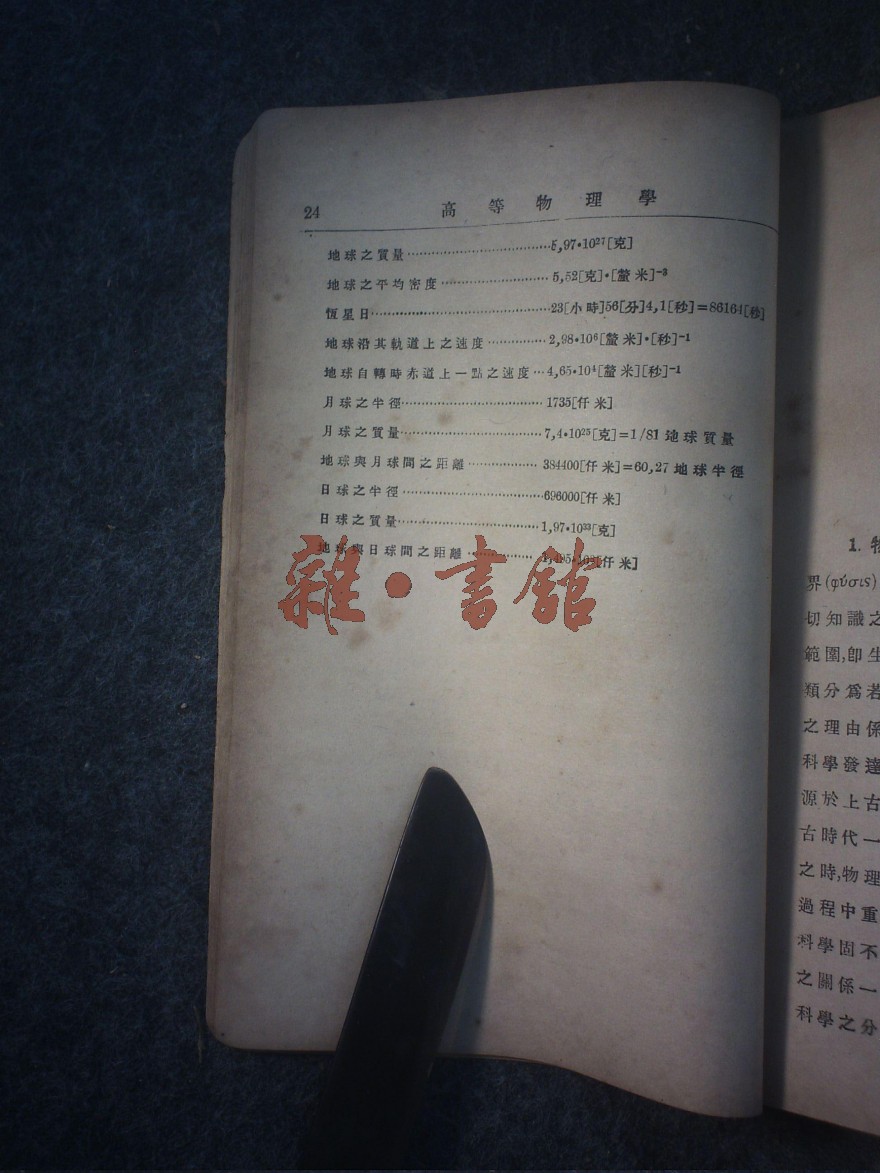 24 高等物理學
地球之質量……………………5,97•10²⁷[克]
地球之平均密度……………… 5,52[克]•[釐米]⁻³
恆星日…………………………23[小時]56[分]4,1[秒]=86164[秒]
地球沿其軌道上之速度………… 2,98•10⁶[釐米]•[秒]⁻¹
地球自轉時赤道上一點之速度…4,65•10⁴[釐米][秒]⁻¹
月球之半徑…………………… 1735[仟米]
月球之質量……………………7,4•10²⁵[克]=1/81 地球質量
地球與月球間之距離………… 384400[仟米]=60,27 地球半徑
日球之半徑……………………696000[仟米]
日球之質量……………………1,97•10³³[克]
地球與日球間之距離………… [仟米]
雜•書館
1. 物
界(φύσις)
切知識之
範圍,卽生
類分爲若
之理由係
科學發達
源於上古
古時代一
之時,物理
過程中重
科學固不
之關係一
科學之分